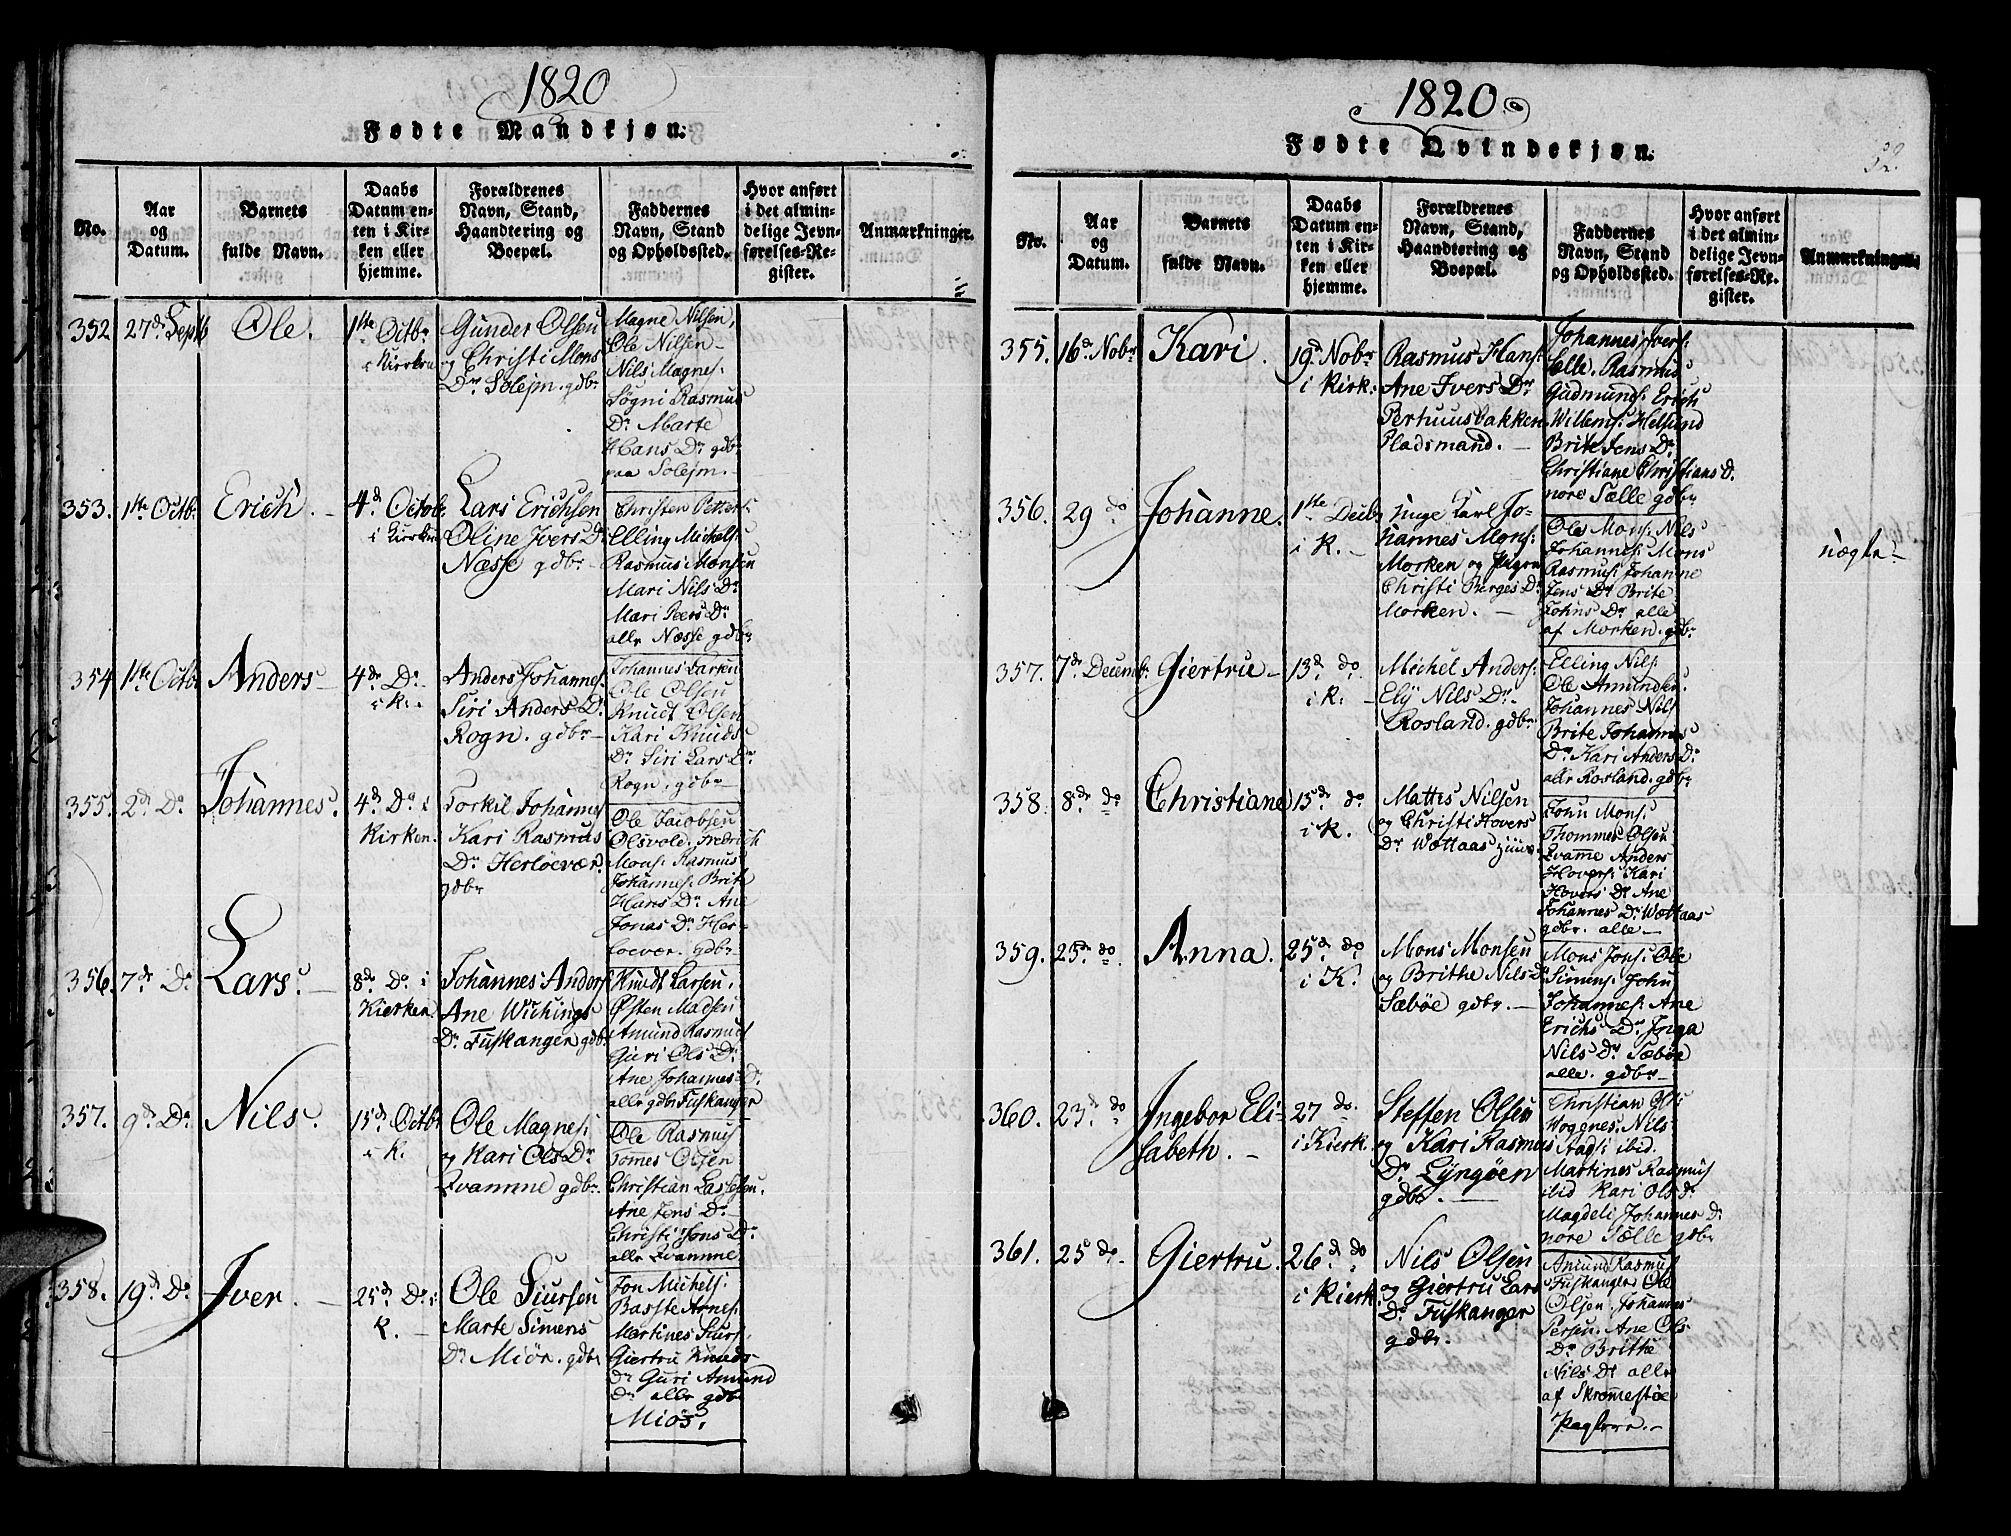 1820
Fødte Mandkjøn.
No.
Aar
og
Datum.
Barnets
fulde Navn.
Daabs
Datum en-
ten i Kir-
ken eller
hjemme.
Forældrenes
Navn, Stand,
Haandtering og
Boepæl.
Faddernes
Navn, Stand
og Opholdssted.
Hvor anført
i det almin-
delige Jevn-
førelses-Re-
gister.
Anmærkninger.
352
27d Septb
Ole.
1ste Octbr
i Kirken
Gunder Olsen
og Christi Mons
Dr Solejm. gdbr
Magne Nilsen,
Ole Nilsen
Nils Magnes:
Søgni Rasmus
Dr Marte
Hans Dr gdbr
paa Solejm.
353.
1ste Octb.
Erich.
4d Octob.
i Kirken
Lars Erichsen
Oline Ivers Dr
Næsse gdbr
Christen Petters:
Elling Michels:
Rasmus Monsen
Mari Nils Dr
Mari Peers Dr
alle Næsse gdbr
354
1ste Octb.
Anders
4de Do
i K.
Anders Johannes.
Siri Anders Dr
Rogn. gdbr
Johannes Larsen
Ole Olsen
Knudt Olsen
Kari Knuds
Dr Siri Lars Dr
Rogn. gdbr
355.
2d Do
Johannes.
4d Do i
Kirken.
Torkil Johannes
Kari Rasmus
Dr Herløevær
gdbr
Ole Jacobsen
Olsvold. Fredrich
Mons: Rasmus
Johannes: Brite
Hans Dr Ane
Jonas Dr Her-
loevær. gdbr
356.
7d Do
Lars.
8de Do i
Kierken
Johannes Anders
Ane Wichings
Dr Fuskanger gdbr
Knudt Larsen,
Østen Madsen
Amund Rasmus
Guri Ols Dr
Ane Johannes Dr
alle gdbr Fuskanger
357.
9d Do
Nils.
15d Octbr
i K.
Ole Magnes:
og Kari Ols Dr
Qvamme gdbr.
Ole Rasmus
Tomes Olsen
Christian Lassesen.
Ane Jens Dr
Christi Jons Dr
alle Qvamme
358.
19d Do
Iver.
25d Do i
K.
Ole Siursen
Marte Simens
Dr Miør. gdbr
Jon Michels:
Basste Arnes:
Martines Siurs.
Giertru Knuds-
Dr Guri Amund
Dr alle gdbr
Miøs,
1820
Fødte Qvindekjøn.
52.
No.
Aar
og
Datum.
Barnets
fulde Navn.
Daabs
Datum en-
ten i Kir-
ken eller
hjemme.
Forældrenes
Navn, Stand,
Haandtering og
Boepæl.
Faddernes
Navn, Stand
og Opholdssted.
Hvor anført
i det almin-
delige Jevn-
førelses-Re-
gister.
Anmærkninger.
355.
16d Nobr
Kari.
19d Nobr
i Kirk:
Rasmus Hans:
Ane Ivers Dr
Pertuusbakken
Pladsmand.
Johannes Ivers:
Elle. Rasmus
Gudmunds: Erich
Willems: Helsund
Brite Jens Dr
Christiane Christians D.
nore Sælle gdbr
356.
29 do
Johanne.
1ste Decbr
i K.
Karl Jo-
hannes Mons:
Morken og Pigen
Christi Børges Dr
Morken.
Ole Mons: Nils
Johannes: Mons
Rasmus: Johanne
Jens Dr Brite
Johns Dr alle
af Morken. gdbr
357.
7de Decemb:
Giertru
13d do.
i K.
Michel Anders:
Ely Nils Dr
Rosland. gdbr
Elling Nils:
Ole Amundsen.
Johannes Nils
Brite Johannes
Dr Kari Anders Dr
alle Rosland. gdbr
358.
8de do
Christiane
15de do
i K.
Mattis Nilsen
og Christi Hovers
Dr Wottaas
John Mons:
Thommes Olsen
Qvamme Anders
Hovers: Kari
Hovers Dr Ane
Johannes Dr Wottaas
gdbr. alle
359.
23de do
Anna.
25de do
i K.
Mons Monsen
og Brithe Nils Dr
Sæbøe gdbr.
Mons Jons: Ole
Simens: John
Johannes: Ane
Erichs Dr Inga
Nils Dr Sæbøe
alle. gdbr
360.
23de do
Ingebor Eli-
sabeth.
27 do.
i Kierk.
Steffen Olsen
og Kari Rasmus
Dr Lyngøen
gdbr.
Christian Ols:
Hopgnes: Nils
Aads: ibid.
Martines Rasmus
ibid Kari Ols Dr
Magdeli Johannes Dr
nore Sælle gdbr
361.
25 do
Giertru
26d do
i Kierk.
Nils Olsen
og Giertru Lars
Dr Fuskanger
gdbr.
Amund Rasmus
Fuskanger Ole
Olsen. Johannes
Persen. Ane Ols-
Dr Brithe
Nils Dr alle
af Skromestøe